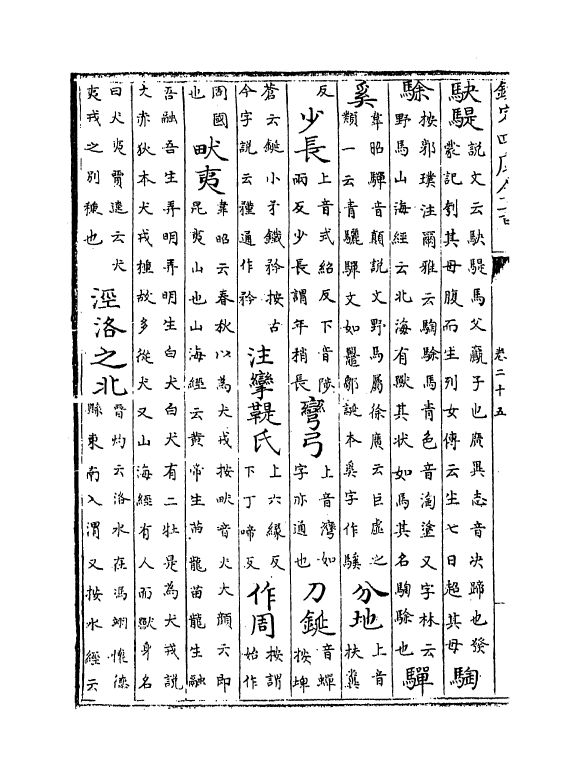 欽定四庫全書
卷二十五
駃騠說文云駃騠馬父臝子也廣異志音决蹄也發
蒙記刳其母腹而生列女傳云生七日超其母騊
駼按郭璞注爾雅云騊駼馬青色音淘塗又字林云
野馬山海經云北海有獸其狀如馬其名騊駼也驒
奚韋昭驒音顛說文野馬屬徐廣云巨虛之
類一云青驪驒文如鼉鄒誕本奚字作騱分地上音
扶糞
反少長上音式紹反下音陟
兩反少長謂年稍長彎弓上音灣如
字亦通也刀鋋音蟬
按埤
蒼云鋋小矛鐵矜按古
今字說云通作矜注攣鞮氏上六緣反
下丁啼反作周按謂
始作
周國
也畎夷韋昭云春秋以為犬戎按畎音犬大顔云即
昆夷山也山海經云黄帝生苗龍苗龍生融
吾融吾生弄明弄明生白犬白犬有二牡是為犬戎說
文赤狄本犬戎種故多從犬又山海經有人面獸身名
曰犬夷賈逵云犬
夷戎之別種也涇洛之北晉灼云洛水在馮翊懷德
縣東南入渭又按水經云